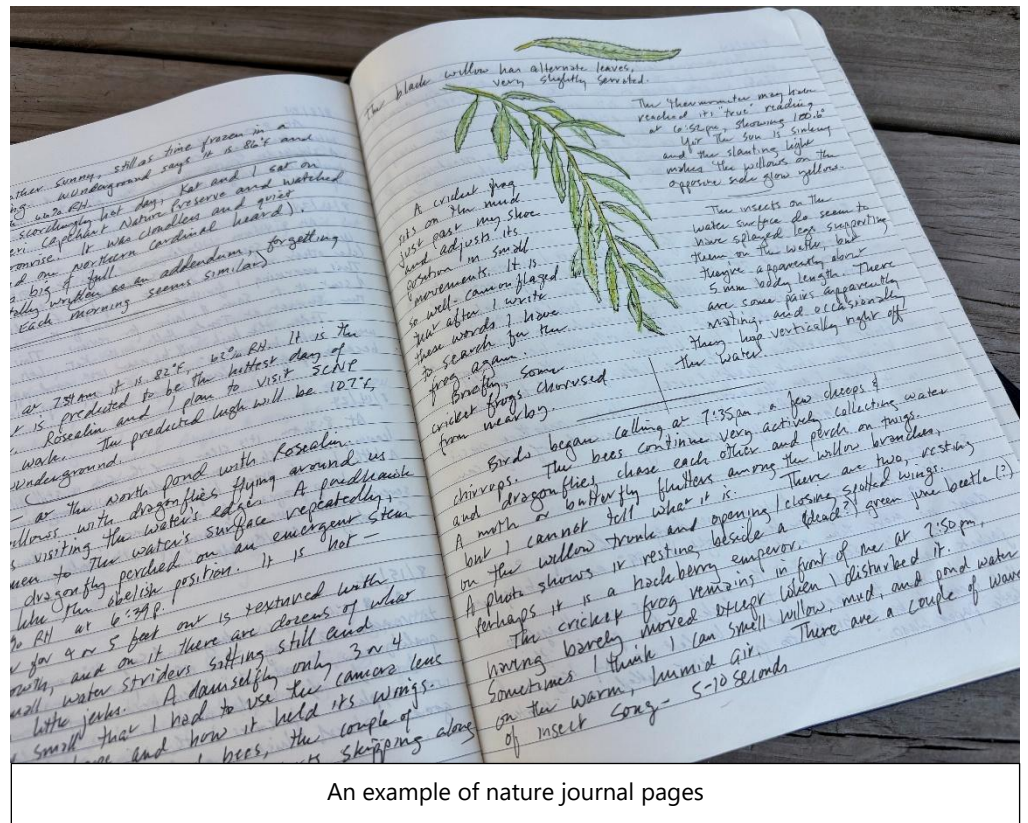 ther sunny, still as time frozen in a
Wunderground says it is 86°F and
RH.
scorchingly hot day, Kat and I sat on
Capehart Nature Preserve and watched
It was cloudless and quiet
one northern cardinal heard).
written as an addendum, forgetting
Each morning seems similar)
at 7:54am it is 82°F, 62% RH. It is the
is predicted to be the hottest day of
Rosealin and I plan to visit SCNP
work. The predicted high will be 107°F,
underground.
at the north pond with Rosealin.
willows, with dragonflies flying around us
visiting the water's edge. A pondhawk
to the water's surface repeatedly,
dragonfly perched on an emergent stem
like the obelisk position. It is hot -
% RH at 6:39p.
for 4 or 5 feet out is textured with
growth, and on it there are dozens of what
small water striders sitting still and
little jerks. A damselfly only 3 or 4
small that I had to use the camera lens
shape and how it held its wings.
bees, the couple of
skipping along
The black willow has alternate leaves,
very slightly serrated.
The thermometer may have
reached its "true" reading
at 6:52pm, showing 100.6°
Yet the sun is sinking
and the slanting light
makes the willows on the
opposite side glow yellow.
A cricket frog
sits on the mud
just past my shoe
and adjusts its
position in small
movements. It is
so well-camouflaged
that after I write
these words I have
to search for the
frog again.
Briefly, some
cricket frogs chorused
from nearby.
The insects on the
water surface do seem to
have splayed legs supporting
them on the water, but
they're apparently about
5 mm body length. There
are some pairs apparently
mating, and occasionally
they hop vertically right off
the water
Birds began calling at 7:35pm, a few cheeps &
chirrops. The bees continue very actively collecting water
and dragonflies chase each other and perch on twigs.
A moth or butterfly flutters among the willow branches,
but I cannot tell what it is. There are two, resting
on the willow trunk and opening/closing spotted wings.
A photo shows it resting beside a (dead?) green june beetle (?)
Perhaps it is a hackberry emperor.
The cricket frog remains in front of me at 7:50pm,
having barely moved except when I disturbed it.
Sometimes I think I can smell willow, mud, and pond water
on the warm, humid air. There are a couple of waves
of insect song - 5-10 seconds
An example of nature journal pages